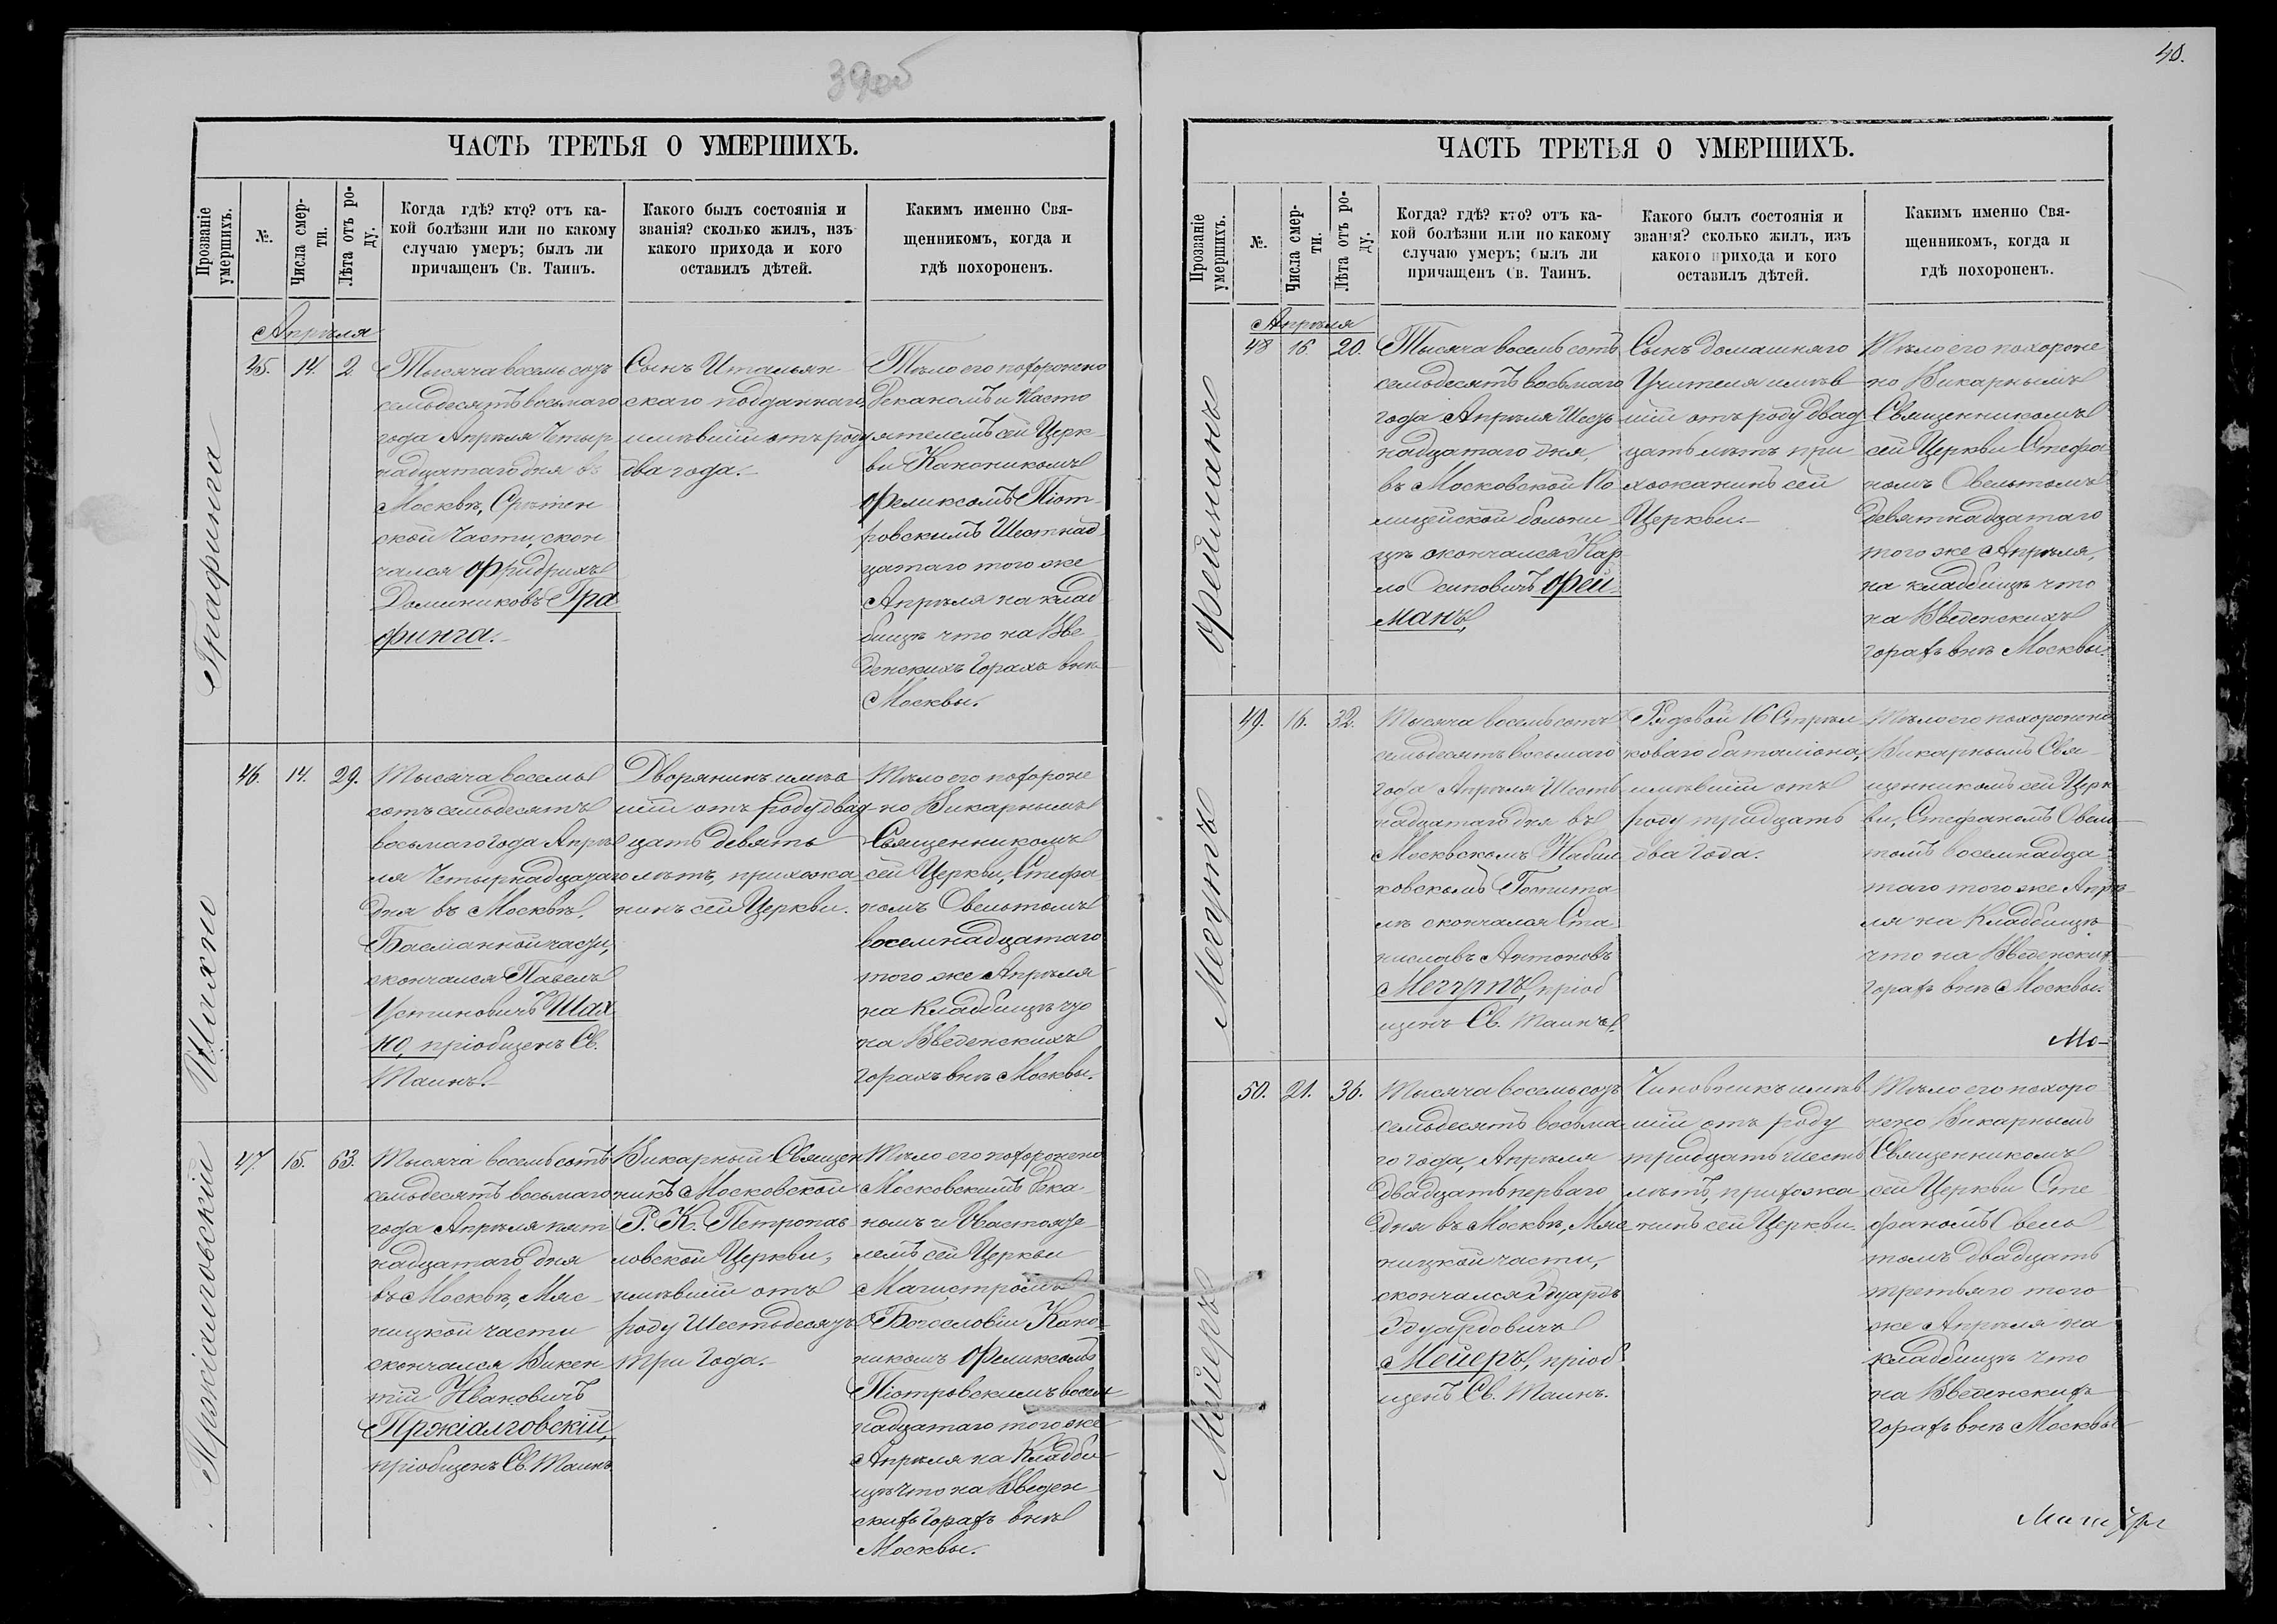 39об
ЧАСТЬ ТРЕТЬЯ О УМЕРШИХЪ.
Прозваніе умершихъ.
№.
Числа смер-
ти.
Лѣта отъ ро-
ду.
Когда гдѣ? кто? отъ ка-
кой болѣзни или по какому
случаю умеръ; былъ ли
причащенъ Св. Таинъ.
Какого былъ состоянія и
званія? сколько жилъ, изъ
какого прихода и кого
оставилъ дѣтей.
Какимъ именно Свя-
щенникомъ, когда и
гдѣ похороненъ.
Апрѣля
Графинга
45. 14. 2.
Тысяча восемьсотъ
семьдесятъ восьмаго
года Апрѣля Четыр
надцатаго дня въ
Москвѣ, Срѣтен
ской Части, скон
чался Фридрихъ
Доминиковъ Гра
финга.
Сынъ Итальян
скаго подданнаго,
имѣвшій отъ роду
два года.
Тѣло его похоронено
Деканомъ и Насто
ятелемъ сей Церк
ви Каноникомъ
Феликсомъ Піот-
ровскимъ Шестнад
цатаго того же
Апрѣля на клад
бищѣ что на Вве
денскихъ Горахъ внѣ
Москвы.
Шахно
46. 14. 29.
Тысяча восемь
сотъ семьдесятъ
восьмаго года Апрѣ
ля Четырнадцатаго
дня въ Москвѣ,
Басманной части,
скончался Павелъ
Устиновичъ Шах
но, пріобщенъ Св.
Таинъ.
Дворянинъ имѣв
шій отъ роду двад
цать девять
лѣтъ, прихожа
нинъ сей Церкви.
Тѣло его похороне
но Викарнымъ
Священникомъ
сей Церкви, Стефа
номъ Овельтомъ
восемнадцатаго
того же Апрѣля
на Кладбищѣ что
на Введенскихъ
горахъ внѣ Москвы.
Пржіалговскій
47. 15. 63.
Тысяча восемьсотъ
семьдесятъ восьмаго
года Апрѣля пят
надцатаго дня
въ Москвѣ, Мяс
ницкой части
скончался Викен
тій Ивановичъ
Пржіалговскій,
пріобщенъ Св. Таинъ
Викарный Священ
никъ Московской
Р. К. Петропав
ловской Церкви,
имѣвшій отъ
роду Шестьдесятъ
три года.
Тѣло его похоронено
Московскимъ Дека
номъ и Настояте
лемъ сей Церкви
Магистромъ
Богословія Кано
никомъ Феликсомъ
Піотровскимъ восем
надцатаго того же
Апрѣля на Кладби
щѣ что на Введен
скихъ Горахъ внѣ
Москвы.
40.
ЧАСТЬ ТРЕТЬЯ О УМЕРШИХЪ.
Прозваніе умершихъ.
№.
Числа смер-
ти.
Лѣта отъ ро-
ду.
Когда? гдѣ? кто? отъ ка-
кой болѣзни или по какому
случаю умеръ; былъ ли
причащенъ Св. Таинъ.
Какого былъ состоянія и
званія? сколько жилъ, изъ
какого прихода и кого
оставилъ дѣтей.
Какимъ именно Свя-
щенникомъ, когда и
гдѣ похороненъ.
Апрѣля
Фейманъ
48 16. 20.
Тысяча восемьсотъ
семьдесятъ восьмаго
года Апрѣля Шест
надцатаго дня,
въ Московской По
лицейской больни
цѣ скончался Кар
ло Осиповичъ Фей
манъ,
Сынъ домашняго
Учителя имѣв
шій отъ роду двад
цать лѣтъ при
хожанинъ сей
Церкви.
Тѣло его похороне
но Викарнымъ
Священникомъ
сей Церкви Стефа
номъ Овельтомъ
девятнадцатаго
того же Апрѣля,
на кладбищѣ что
на Введенскихъ
горахъ внѣ Москвы.
Мегутъ
49. 16. 32.
Тысяча восемьсотъ
семьдесятъ восьмаго
года Апрѣля Шест
надцатаго дня въ
Москвскомъ
ковскомъ Госпита
лѣ скончался Ста
ниславъ Антоновъ
Мегутъ, пріоб
щенъ Св. Таинъ.
Рядовой 16 Стрѣл
коваго баталіона,
имѣвшій отъ
роду тридцать
два года.
Тѣло его похоронено
Викарнымъ Свя
щенникомъ сей Церк
ви, Стефаномъ Овель
томъ восемнадца
таго того же Апрѣ
ля на Кладбищѣ
что на Введенскихъ
горахъ внѣ Москвы.
Ме-
Мейеръ
50. 21. 36.
Тысяча восемьсотъ
семьдесятъ восьма
го года, Апрѣля
двадцать перваго
дня въ Москвѣ, Мяс
ницкой части,
скончался Эдуардъ
Эдуардовичъ
Мейеръ, пріоб
щенъ Св. Таинъ.
Чиновникъ имѣв
шій отъ роду
тридцать шесть
лѣтъ, прихожа
нинъ сей Церкви.
Тѣло его похоро
нено Викарнымъ
Священникомъ
сей Церкви Сте
фаномъ Овель
томъ двадцать
третьяго того
же Апрѣля на
кладбищѣ что
на Введенскихъ
горахъ внѣ Москвы